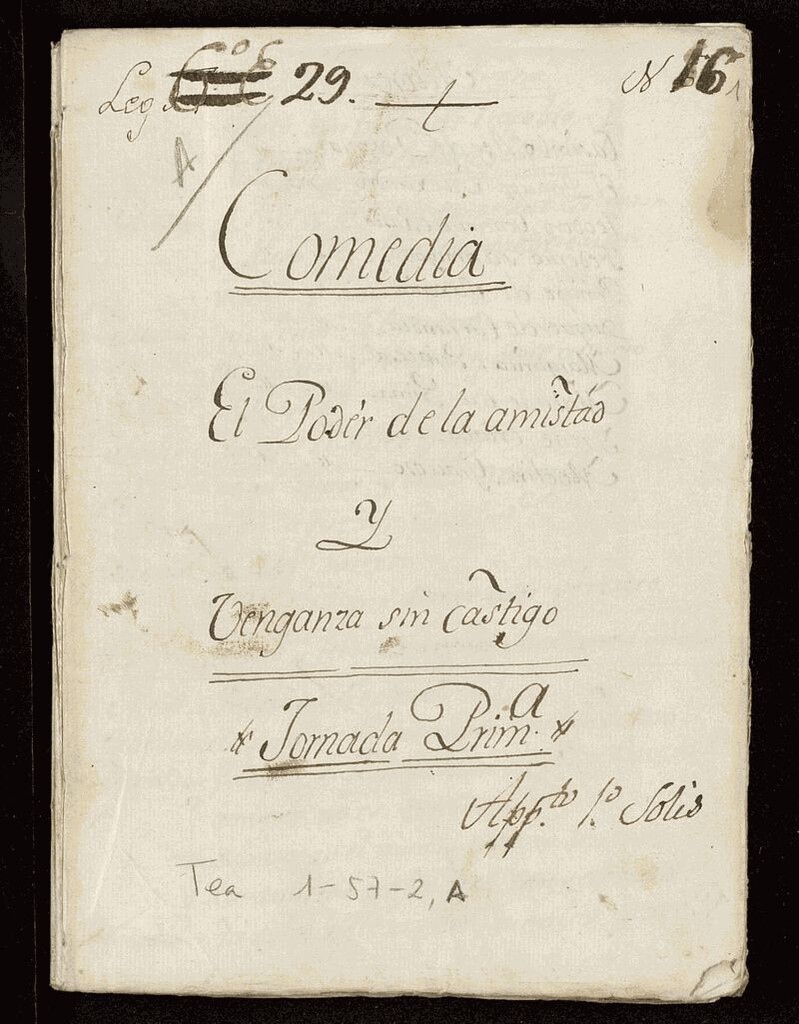 Leg 29. N 16 1
A
Comedia
El Podér de la amistád
Y
Venganza sin castigo
Jornada Prim.a
App.to 1.o Solis
Tea 1-57-2, A